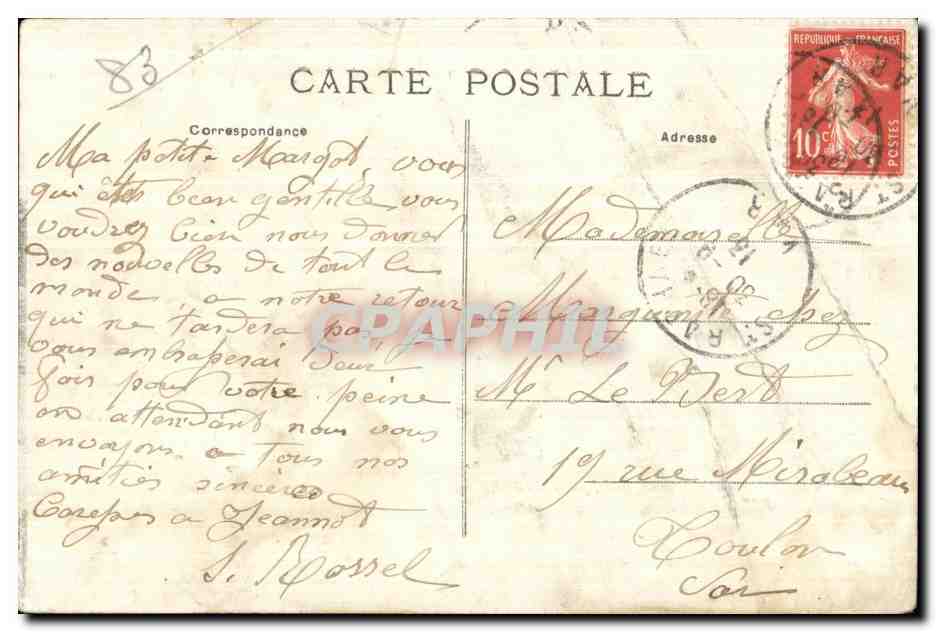 83
CARTE POSTALE
Correspondance
Adresse
REPUBLIQUE FRANÇAISE
10 c
POSTES
Ma petite Margot, vous
qui êtes bien gentille, vous
voudrez bien nous donner
des nouvelles de tout le
monde, a notre retour
qui ne tardera pas
vous
fois pour votre peine
en attendant nous vous
envoyons a tous nos
amitiés sincères
Caresses a Jeannot
S. Rossel
Mademoiselle
Marguerite chez
Mr Le Bert
19 rue Mirabeau
Toulon
Var
CPAPHIL